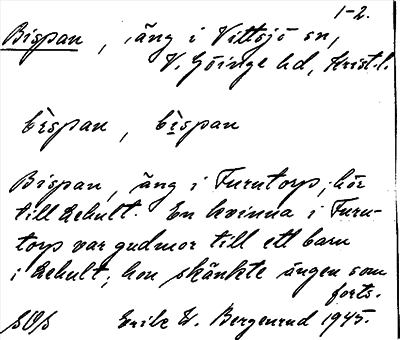 1-2.
Bispan, äng i Vittsjö sn,
V. Göinge hd, Krist. l.
bispan, bispan
Bispan, äng i Furutorp, hör
till Lehult. En kvinna i Furu-
torp var gudmor till ett barn
i Lehult; hon skänkte ängen som
forts.
Erik W. Bergenrud 1945.